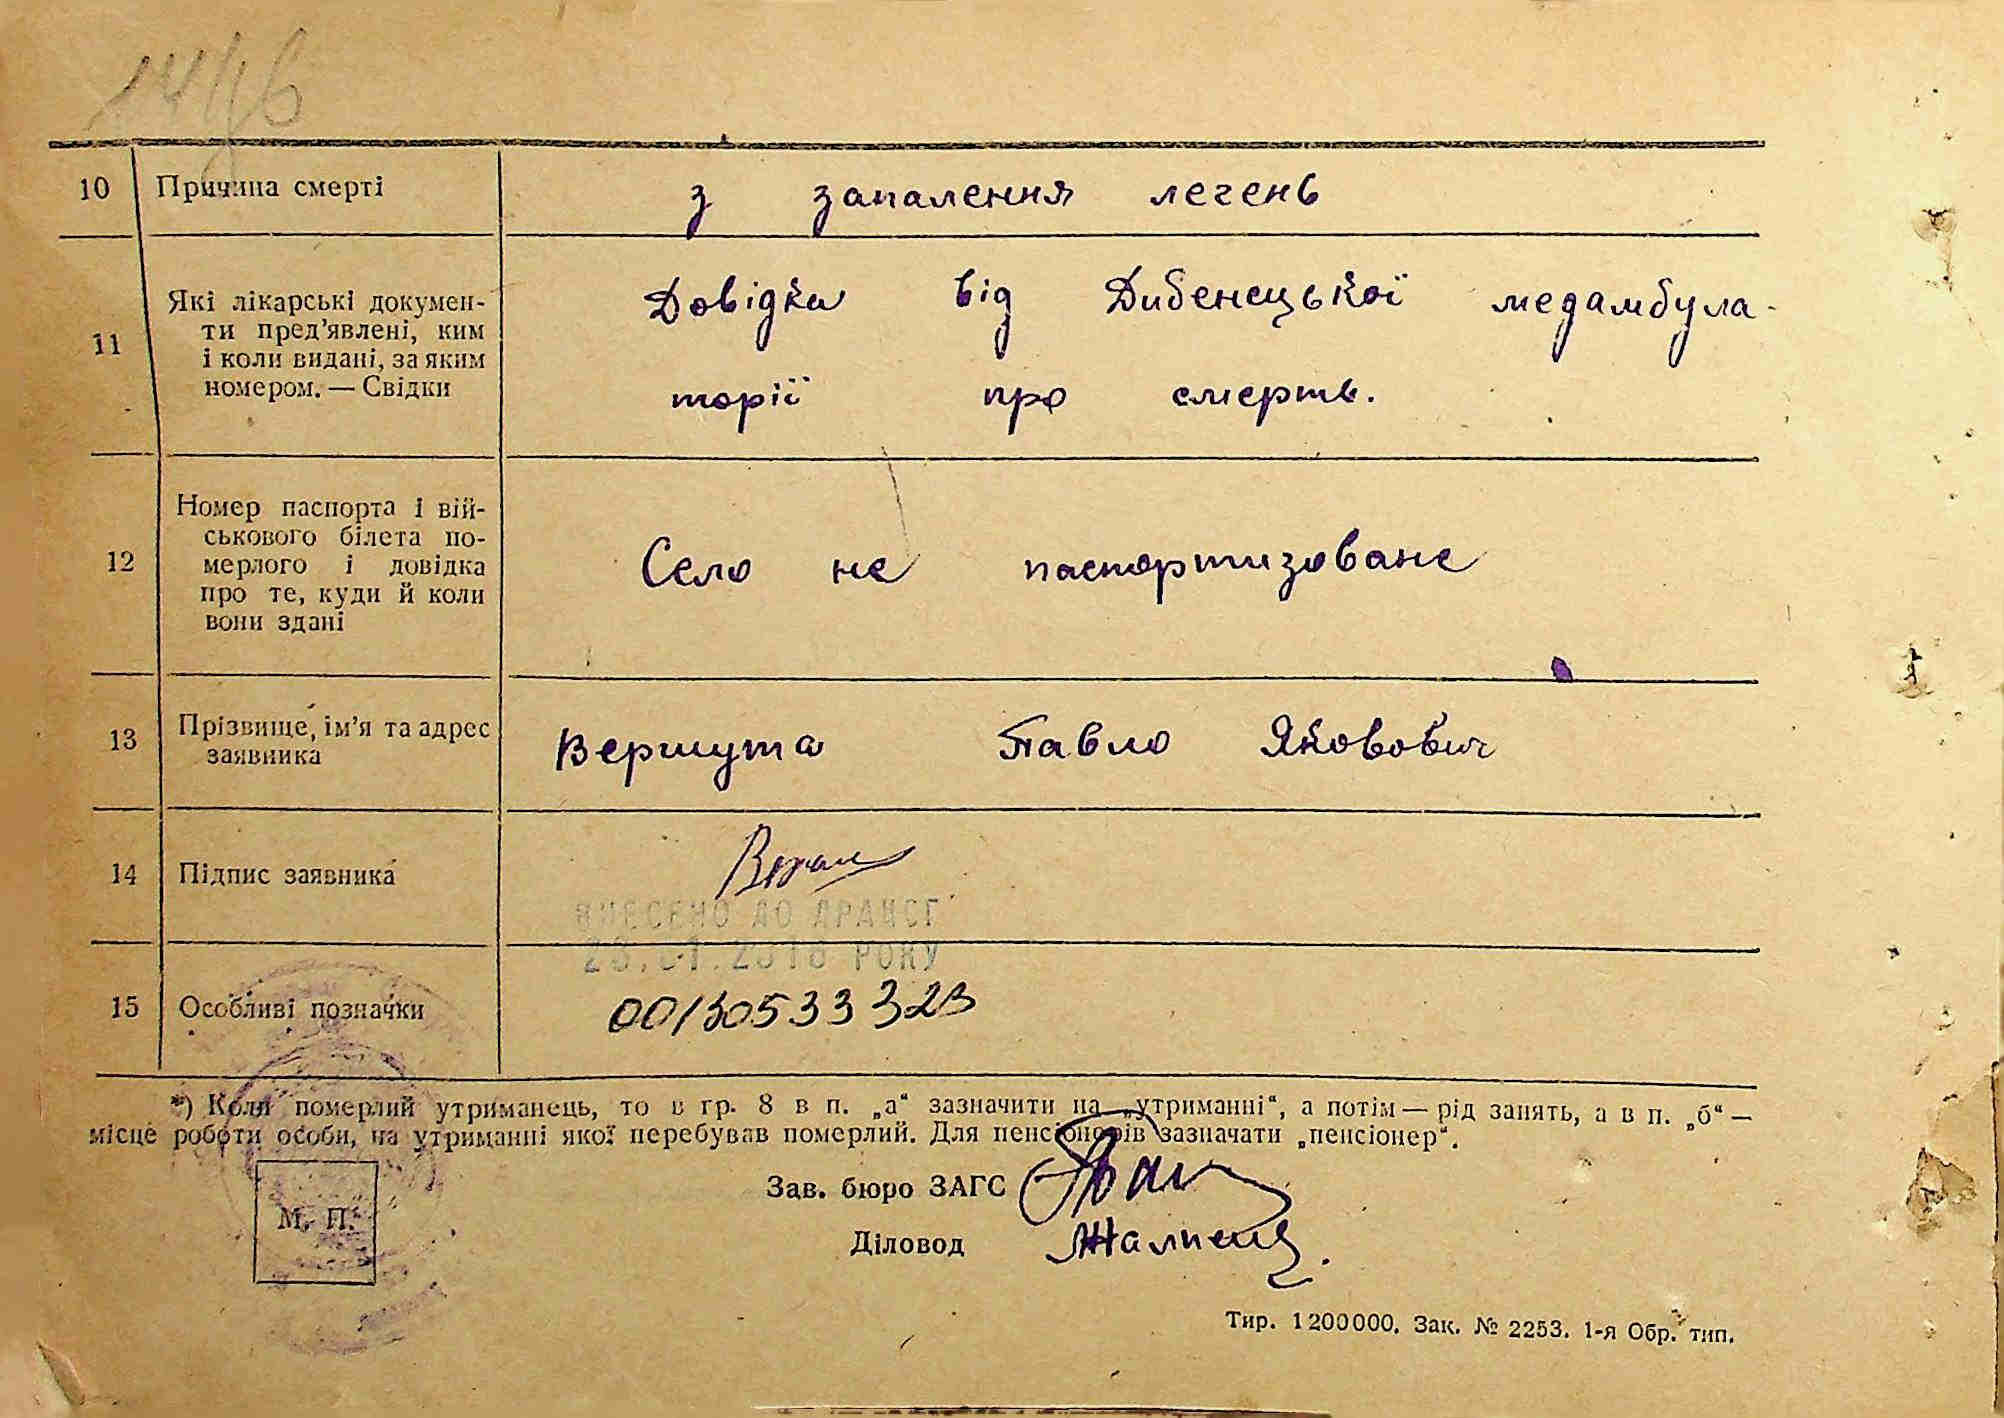 10 Причина смерті з запалення легень
11 Які лікарські докумен-
ти пред’явлені, ким
і коли видані, за яким
номером. — Свідки
Довідка від Дибенецької медамбула-
торії про смерть.
12 Номер паспорта і вій-
ськового білета по-
мерлого і довідка
про те, куди й коли
вони здані
Село не паспортизоване
13 Прізвище, ім’я та адрес
заявника
Вершута Павло Якович
14 Підпис заявника
ВНЕСЕНО ДО ДРАЦСГ
РОКУ
15 Особливі позначки 00130533323
*) Коли померлий утриманець, то в гр. 8 в п. „а“ зазначити на „утриманні“, а потім — рід занять, а в п. „б“ —
місце роботи особи, на утриманні якої перебував померлий. Для пенсіонерів зазначати „пенсіонер“.
Зав. бюро ЗАГС
М. П.
Діловод
Тир. 1200000. Зак. № 2253. 1-я Обр. тип.